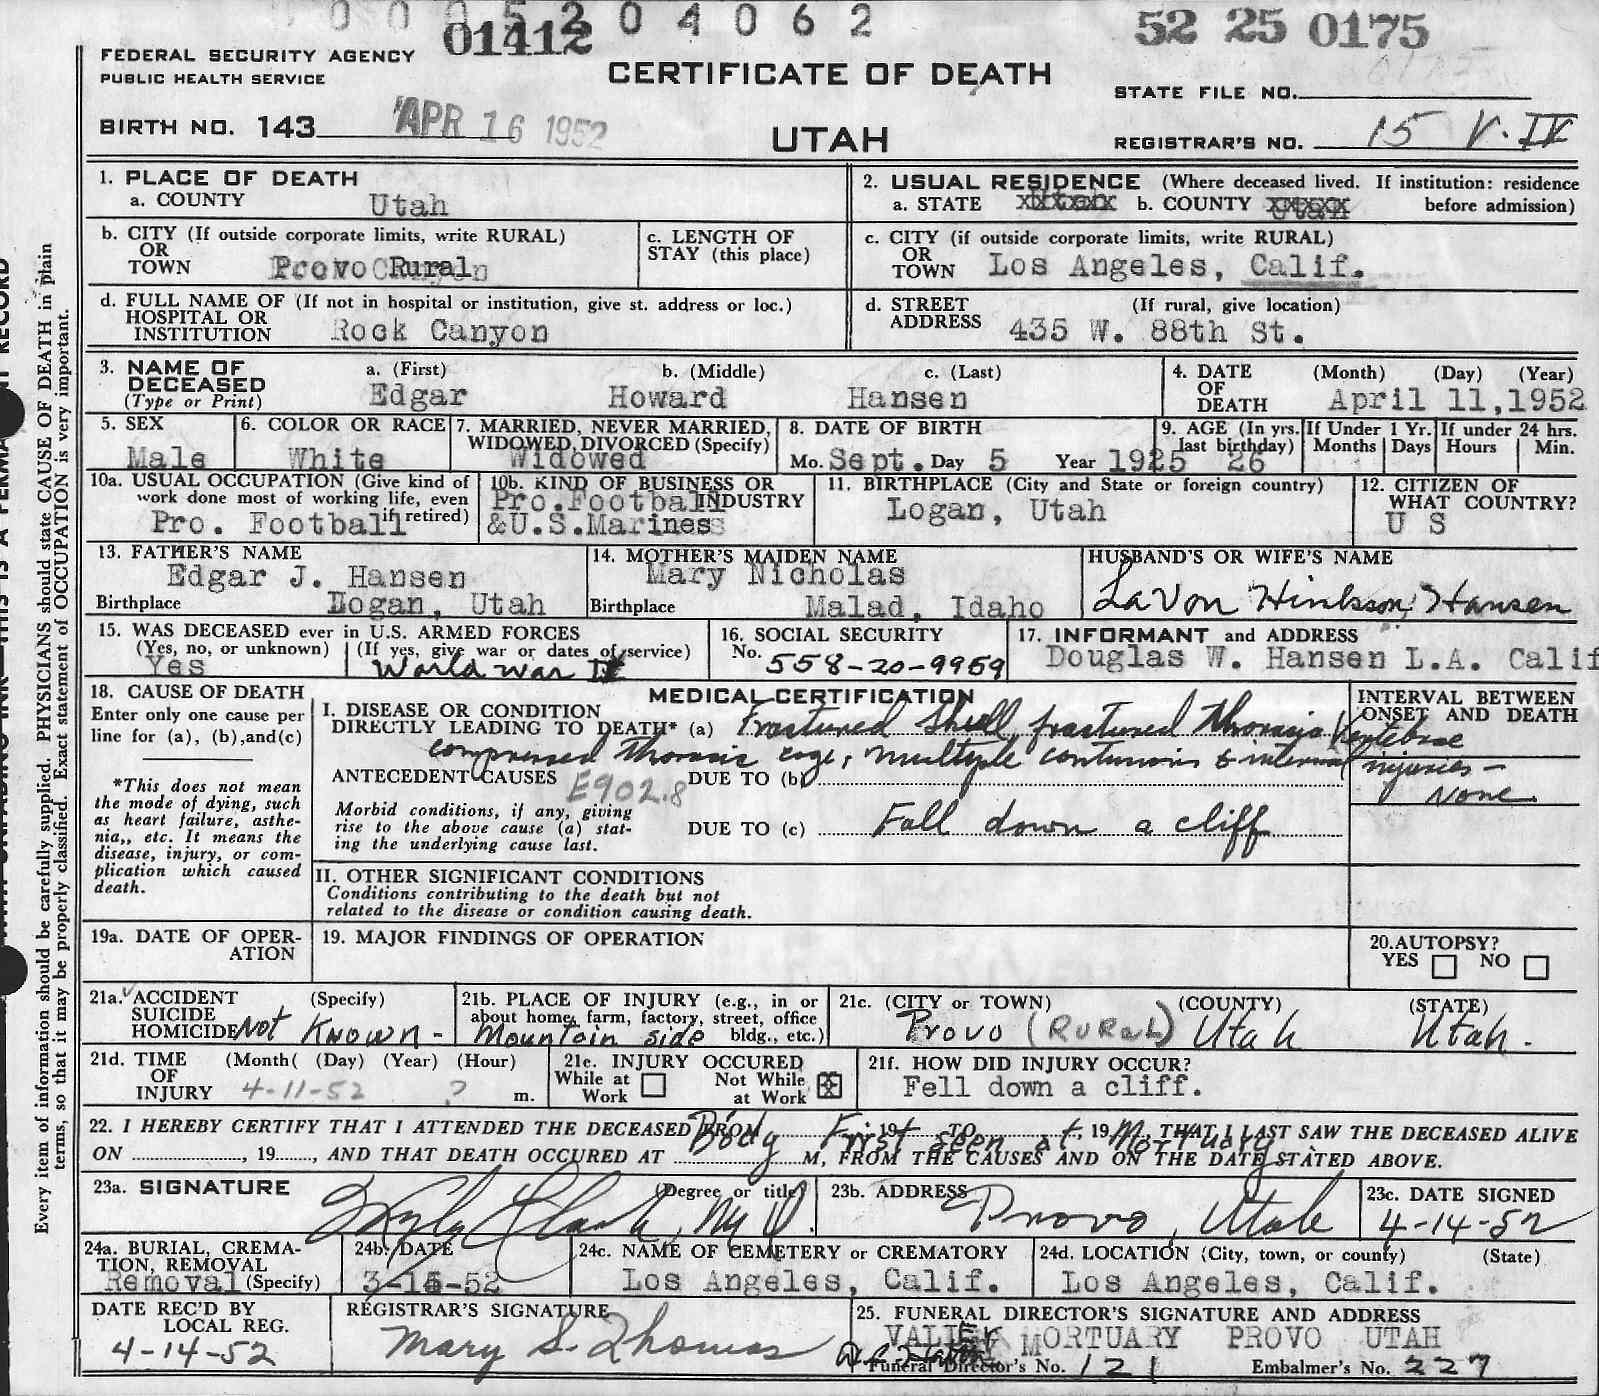 0005204062
01412
52 25 0175
FEDERAL SECURITY AGENCY
PUBLIC HEALTH SERVICE
CERTIFICATE OF DEATH
STATE FILE NO.
BIRTH NO. 143 APR 16 1952
UTAH
REGISTRAR'S NO. 15 V. IV
1. PLACE OF DEATH
a. COUNTY Utah
2. USUAL RESIDENCE (Where deceased lived. If institution: residence before admission)
a. STATE b. COUNTY
b. CITY (If outside corporate limits, write RURAL)
OR
TOWN Provo Rural
c. LENGTH OF
STAY (this place)
c. CITY (if outside corporate limits, write RURAL)
OR
TOWN Los Angeles, Calif.
d. FULL NAME OF (If not in hospital or institution, give st. address or loc.)
HOSPITAL OR
INSTITUTION Rock Canyon
d. STREET (If rural, give location)
ADDRESS 435 W. 88th St.
3. NAME OF
DECEASED
(Type or Print)
a. (First) b. (Middle) c. (Last)
Edgar Howard Hansen
4. DATE (Month) (Day) (Year)
OF
DEATH April 11, 1952
5. SEX
Male
6. COLOR OR RACE
White
7. MARRIED, NEVER MARRIED,
WIDOWED, DIVORCED (Specify)
Widowed
8. DATE OF BIRTH
Mo. Sept. Day 5 Year 1925
9. AGE (In yrs. last birthday) 26
If Under 1 Yr.
Months Days
If under 24 hrs.
Hours Min.
10a. USUAL OCCUPATION (Give kind of
work done most of working life, even
if retired)
Pro. Football
10b. KIND OF BUSINESS OR
INDUSTRY
Pro. Football
&U.S.Marines
11. BIRTHPLACE (City and State or foreign country)
Logan, Utah
12. CITIZEN OF
WHAT COUNTRY?
U S
13. FATHER'S NAME
Edgar J. Hansen
Birthplace Logan, Utah
14. MOTHER'S MAIDEN NAME
Mary Nicholas
Birthplace Malad, Idaho
HUSBAND'S OR WIFE'S NAME
LaVon Hinkson Hansen
15. WAS DECEASED ever in U.S. ARMED FORCES
(Yes, no, or unknown) (If yes, give war or dates of service)
Yes World War II
16. SOCIAL SECURITY
No. 558-20-9959
17. INFORMANT and ADDRESS
Douglas W. Hansen L.A. Calif
18. CAUSE OF DEATH
Enter only one cause per
line for (a), (b),and(c)
*This does not mean
the mode of dying, such
as heart failure, asthe-
nia,, etc. It means the
disease, injury, or com-
plication which caused
death.
MEDICAL CERTIFICATION
INTERVAL BETWEEN
ONSET AND DEATH
I. DISEASE OR CONDITION
DIRECTLY LEADING TO DEATH* (a) Fractured Skull, fractured thorasic Vertebrae
compressed thorasic cage, multiple contusions & internal injuries -
ANTECEDENT CAUSES E902.8 DUE TO (b)
None
Morbid conditions, if any, giving
rise to the above cause (a) stat-
ing the underlying cause last.
DUE TO (c) Fall down a cliff
II. OTHER SIGNIFICANT CONDITIONS
Conditions contributing to the death but not
related to the disease or condition causing death.
19a. DATE OF OPER-
ATION
19. MAJOR FINDINGS OF OPERATION
20.AUTOPSY?
YES NO
21a. ACCIDENT (Specify)
SUICIDE
HOMICIDE Not Known -
21b. PLACE OF INJURY (e.g., in or
about home, farm, factory, street, office
bldg., etc.)
Mountain side
21c. (CITY or TOWN) (COUNTY) (STATE)
Provo (RURAL) Utah Utah.
21d. TIME (Month( (Day) (Year) (Hour)
OF
INJURY 4-11-52 ? m.
21e. INJURY OCCURED
While at Work Not While at Work X
21f. HOW DID INJURY OCCUR?
Fell down a cliff.
22. I HEREBY CERTIFY THAT I ATTENDED THE DECEASED FROM, 19 TO, 19, THAT I LAST SAW THE DECEASED ALIVE
Body First seen at Mortuary
ON, 19, AND THAT DEATH OCCURED AT M, FROM THE CAUSES AND ON THE DATE STATED ABOVE.
23a. SIGNATURE (Degree or title)
Clark, M D.
23b. ADDRESS
Provo, Utah
23c. DATE SIGNED
4-14-52
24a. BURIAL, CREMA-
TION, REMOVAL
Removal (Specify)
24b. DATE
3-15-52
24c. NAME OF CEMETERY or CREMATORY
Los Angeles, Calif.
24d. LOCATION (City, town, or county) (State)
Los Angeles, Calif.
DATE REC'D BY
LOCAL REG.
4-14-52
REGISTRAR'S SIGNATURE
Mary S. Thomas
25. FUNERAL DIRECTOR'S SIGNATURE AND ADDRESS
MORTUARY PROVO UTAH
Funeral Director's No. 121 Embalmer's No. 227
Every item of information should be carefully supplied. PHYSICIANS should state CAUSE OF DEATH in plain
terms, so that it may be properly classified. Exact statement of OCCUPATION is very important.